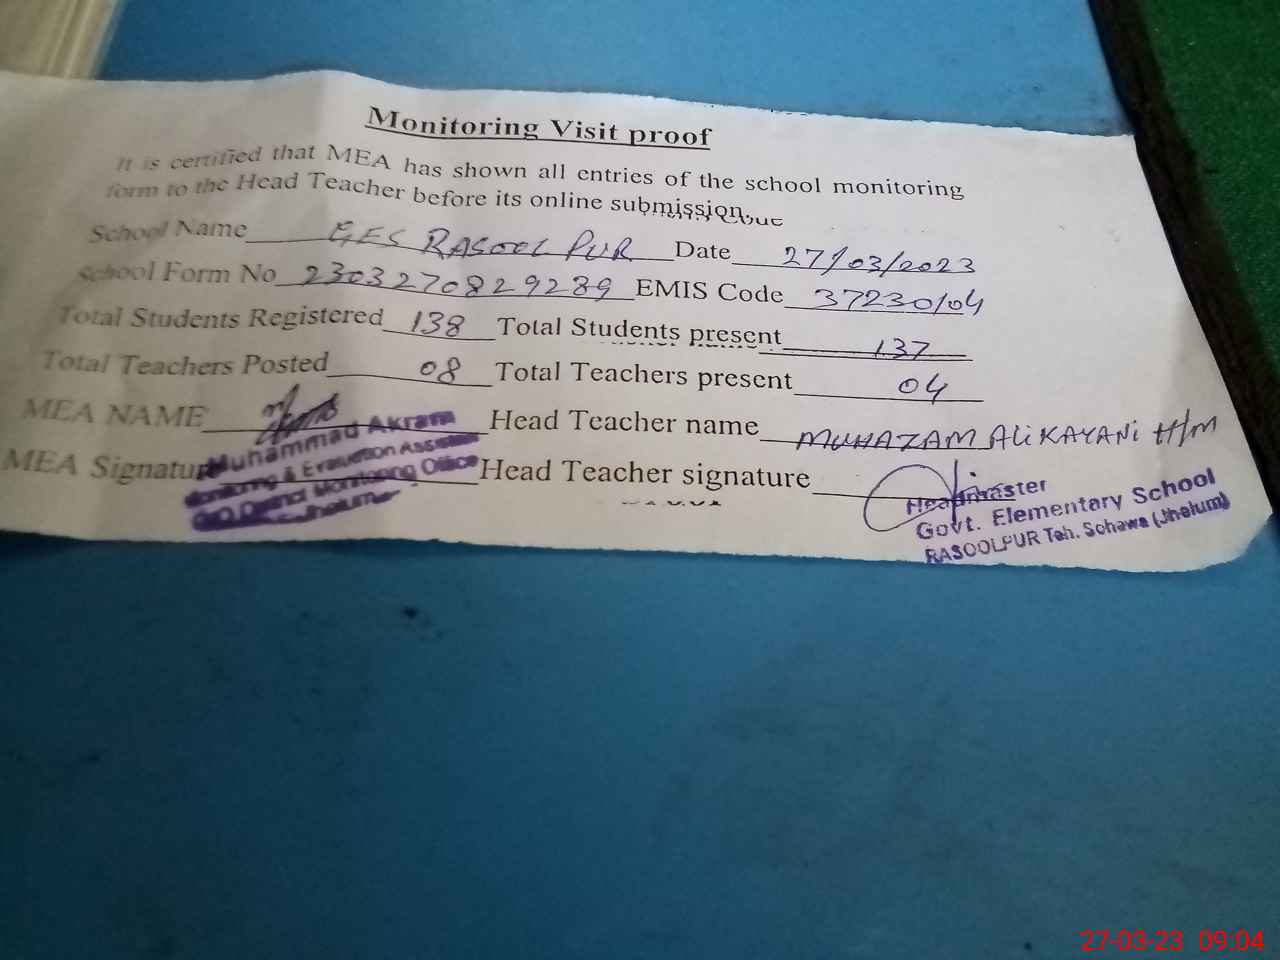 Monitoring Visit proof
It is certified that MEA has shown all entries of the school monitoring
form to the Head Teacher before its online submission.
School Name GES RASOOL PUR Date 27/03/2023
School Form No 2303270829289 EMIS Code 37230104
Total Students Registered 138 Total Students present 137
Total Teachers Posted 08 Total Teachers present 04
MEA NAME Head Teacher name MUHAZAM ALi KAYANi H/M
Muhammad Akram
MEA Signature Head Teacher signature
Monitoring & Evaluation Assistant
District Monitoring Office
Jhelum
Headmaster
Govt. Elementary School
RASOOLPUR Teh. Sohawa (Jhelum)
27-03-23 09:04